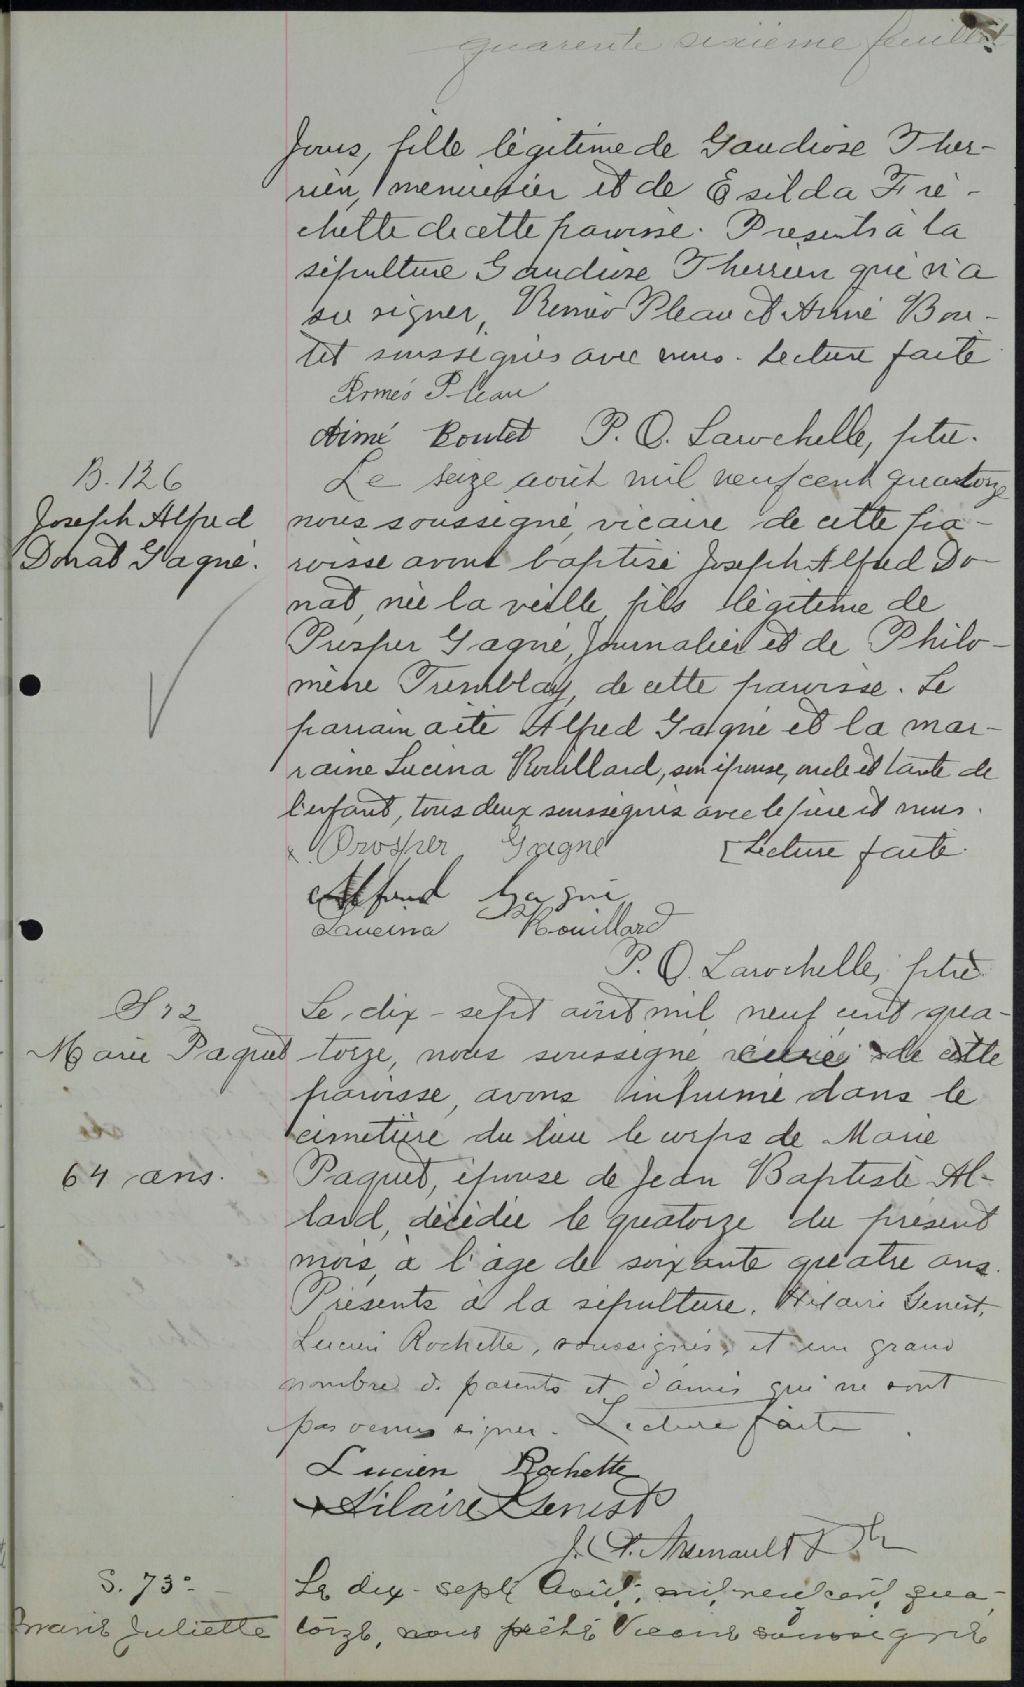 quarente sixième feuillet
jours, fille légitime de Gaudiose Ther-
rien, menuisier et de Exilda Fré-
chette de cette paroisse. Présents à la
sépulture Gaudiose Therrien qui n'a
su signer, Roméo Pleau et Aimé Bou-
tet soussignés avec nous. Lecture faite
Roméo Pleau
Aimé Boutet P. O. Larochelle, ptre.
B. 126
Joseph Alfred
Donat Gagné.
Le seize août mil neuf cent quatorze
nous soussigné, vicaire de cette pa-
roisse avons baptisé Joseph Alfred Do-
nat, née la veille, fils légitime de
Prosper Gagné, journalier et de Philo-
mène Tremblay, de cette paroisse. Le
parrain a été Alfred Gagné et la mar-
raine Lucina Rouillard, son épouse, oncle et tante de
l'enfant, tous deux soussignés avec le père et nous.
x. Prosper Gagné [Lecture faite.
Alfred Gagné
Laucina Rouillard
P. O. Larochelle, ptre
S 72
Marie Paquet
64 ans.
Le dix-sept août mil neuf cent qua-
torze, nous soussigné curé de cette
paroisse, avons inhumé dans le
cimetière du lieu le corps de Marie
Paquet, épouse de Jean Baptiste Al-
lard, décédée le quatorze du présent
mois, à l'âge de soixante quatre ans.
Présents à la sépulture, Hilaire Genest,
Lucien Rochette, soussignés, et un grand
nombre de parents et d'amis qui ne sont
pas venus signer. Lecture faite.
Lucien Rochette
Hilaire Genest
Arsenault
S. 73°
Marie Juliette
Le dix-sept Août, mil neuf cent qua-
torze, nous prêtre Vicaire soussigné